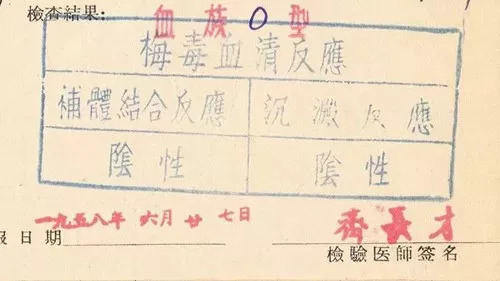 檢查結果:血族 O 型
梅毒血清反應
補體結合反應 沉澱反應
陰性 陰性
一九五八年六月廿七日
報日期 齊長才
檢驗医師签名